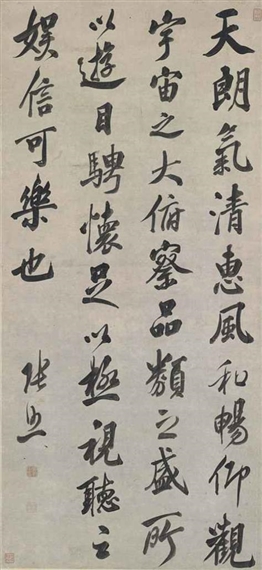 天朗氣清惠風和暢仰觀
宇宙之大俯察品類之盛所
以遊目騁懷足以極視聽之
娛信可樂也
張照